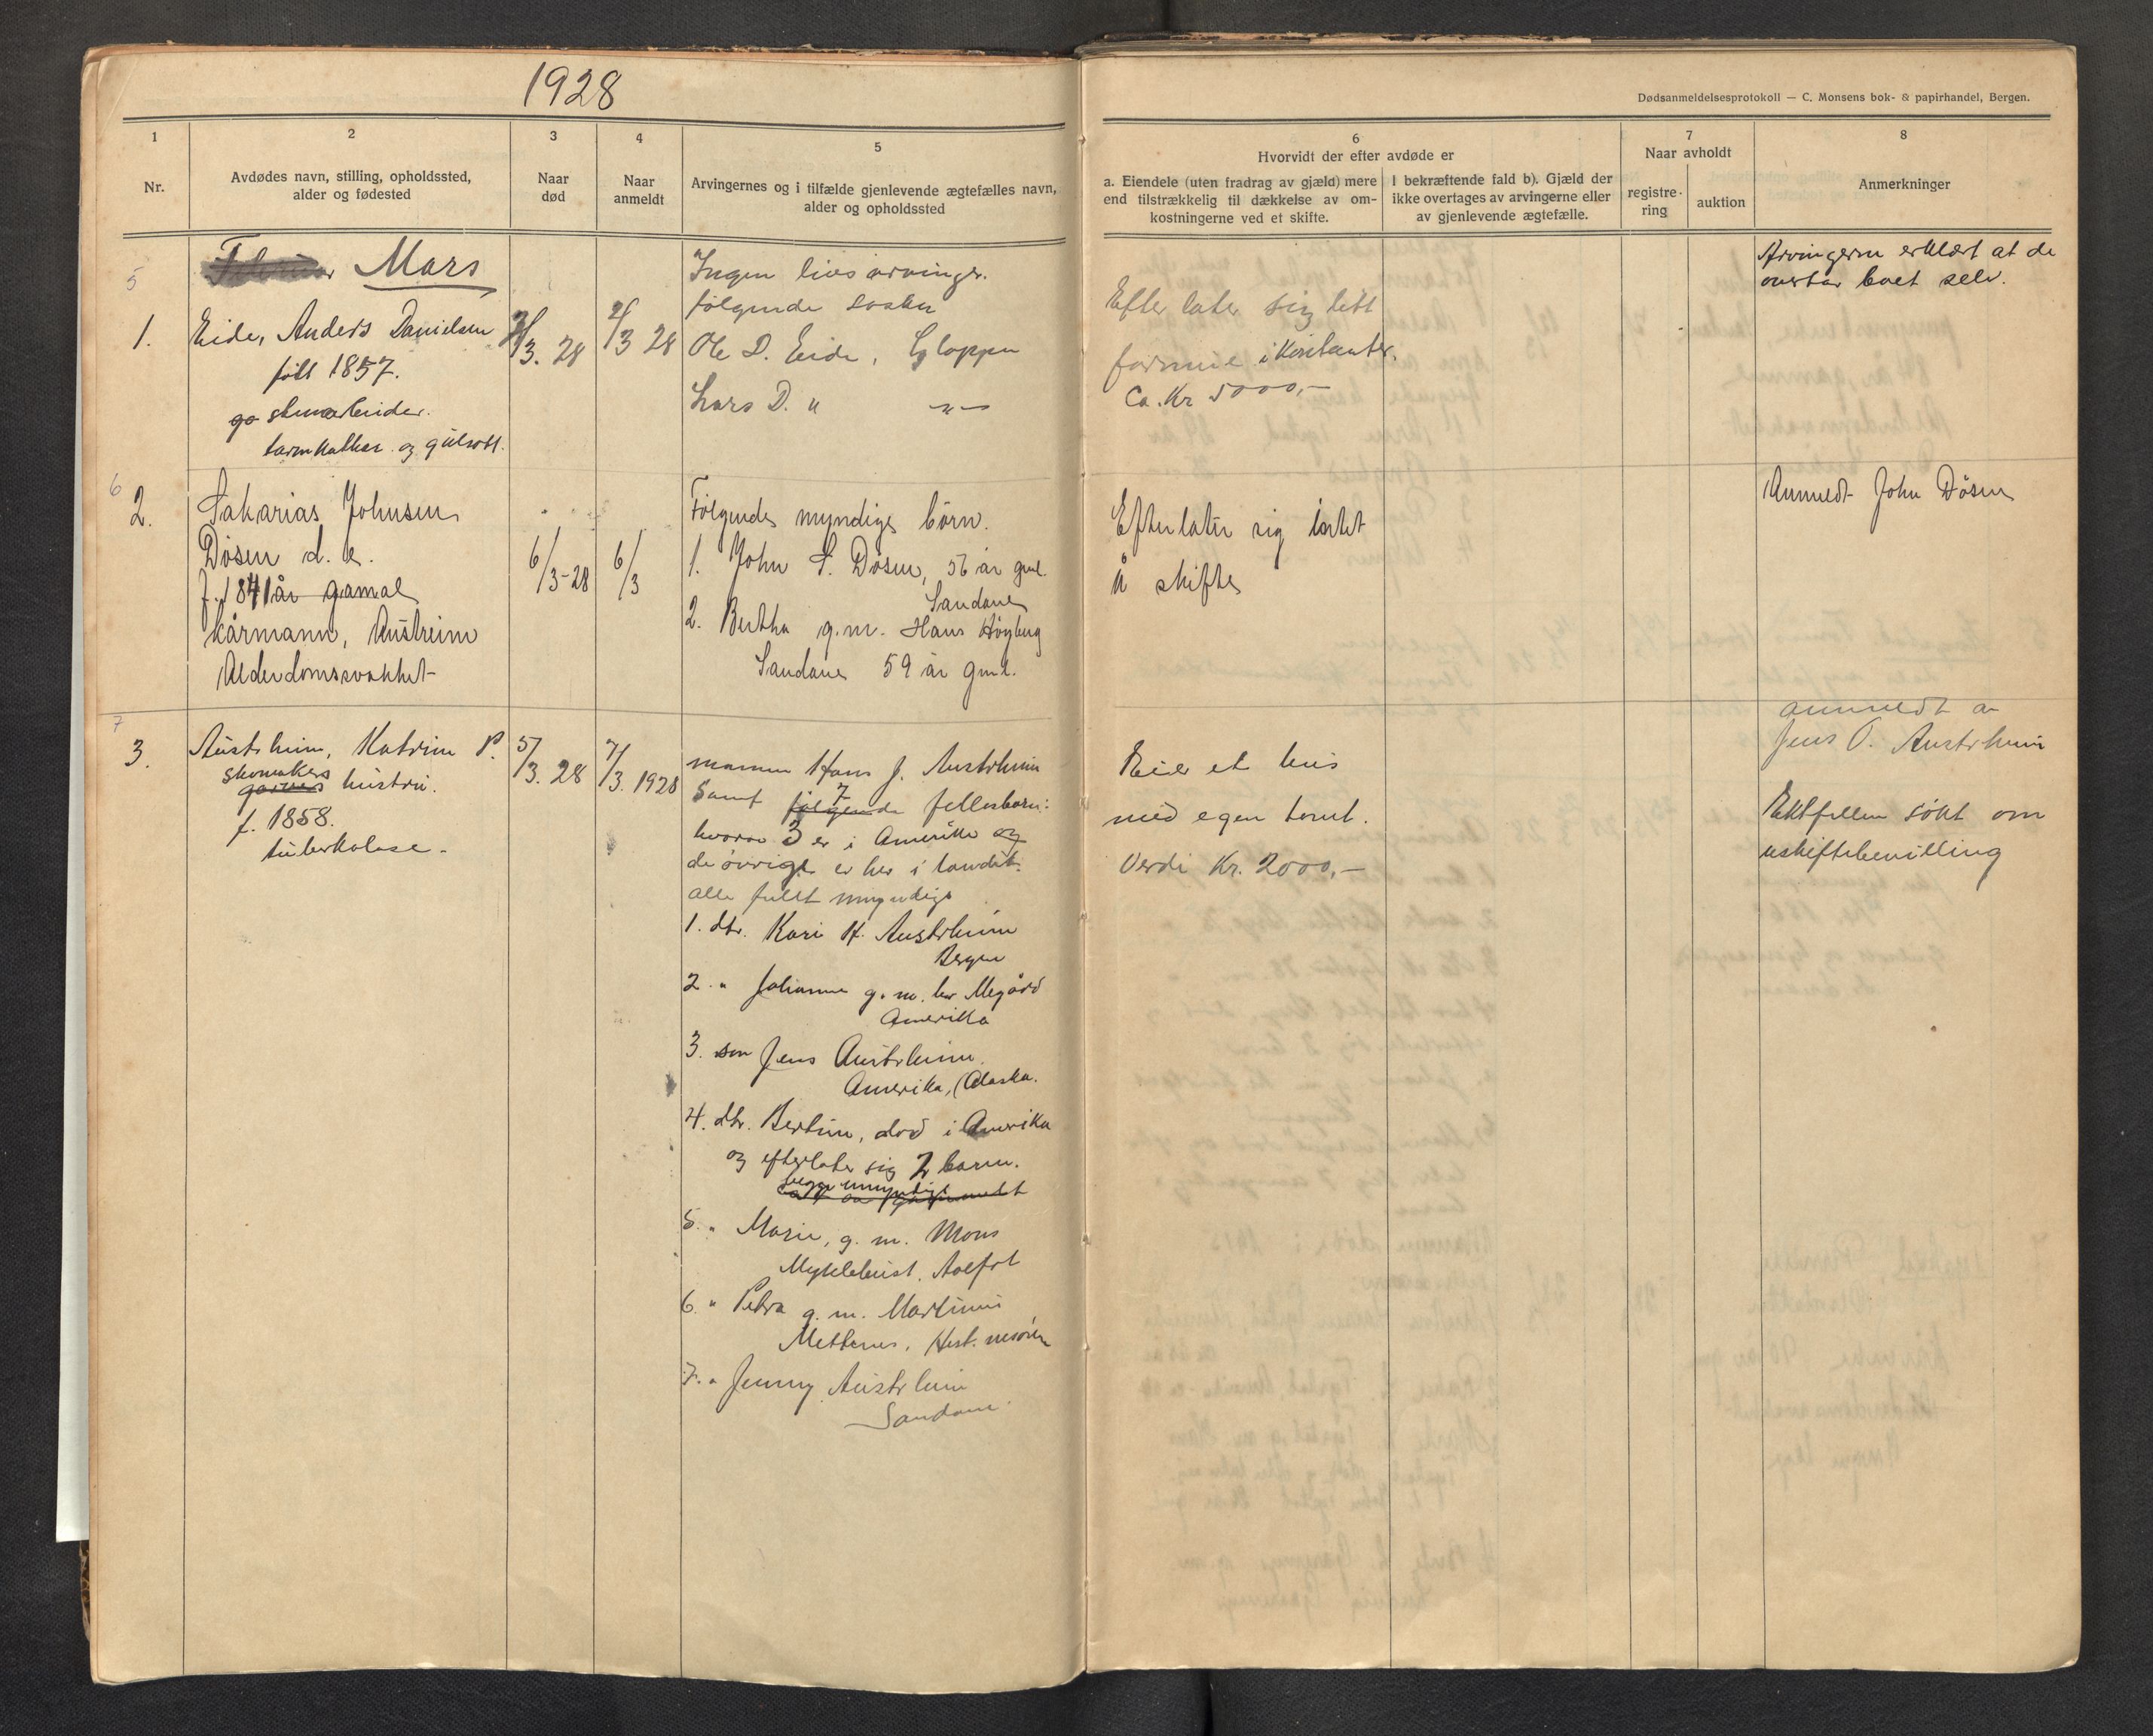 1928
Dødsanmeldelsesprotokoll — C. Monsens bok- & papirhandel, Bergen.
1
Nr.
2
Avdødes navn, stilling, opholdssted,
alder og fødested
3
Naar
død
4
Naar
anmeldt
5
Arvingernes og i tilfælde gjenlevende ægtefælles navn,
alder og opholdssted
6
Hvorvidt der efter avdøde er
a. Eiendele (uten fradrag av gjæld) mere
end tilstrækkelig til dækkelse av om-
kostningerne ved et skifte.
I bekræftende fald b). Gjæld der
ikke overtages av arvingerne eller
av gjenlevende ægtefælle.
7
Naar avholdt
registre-
ring
auktion
8
Anmerkninger
Februar Mars
5
1.
Eide, Anders Danielsen
født 1857.
tarmkatharr og gulsott.
3. 28
2/3 28
Ingen livsarvinger.
følgende søsken
Ole D. Eide, Gloppen
Lars D. " —"—
Efterlater sig litt
formue i kontanter.
Ca. Kr 5000,-
Arvingerne erklært at de
overtar boet selv.
6
2.
Sakarias Johnsen
Døsen d. e.
f. 1841 år gamal
kårmann, Austreim
Alderdomssvakhet
6/3-28
6/3
Følgende myndige børn.
1. John S. Døsen, 56 år gml.
Sandane
2. Bertha g.m. Hans Høyberg
Sandane 59 år gml.
Efterlater sig intet
å skifte
Anmeldt John Døsen
7
3.
Austrheim, Katrine P.
skomakers
hustru.
f. 1858.
tuberkulose.
5/3. 28
7/3. 1928
mannen Hans J. Austrheim
samt følgende 7 fellesbarn:
hvorav 3 er i Amerika og
de øvrige er her i landet.
alle fullt myndige
1. dtr. Kari H. Austrheim
Bergen
2. " Johanne g. m. Megård
Amerika
3. søn Jens Austrheim.
Amerika, (Alaska.
4. dtr. Bertine, død i Amerika
og efterlater sig 2 barn.
begge umyndige
5. " Marie, g. m. Mons
Myklebust, Aalfot
6. " Petra g. m. Martinus
Mettenes,
7. " Jenny Austrheim
Sandane.
Eier et hus
med egen tomt.
Verdi Kr. 2000,-
anmeldt av
Jens O. Austrheim
Ektfellen søkt om
uskiftebevilling